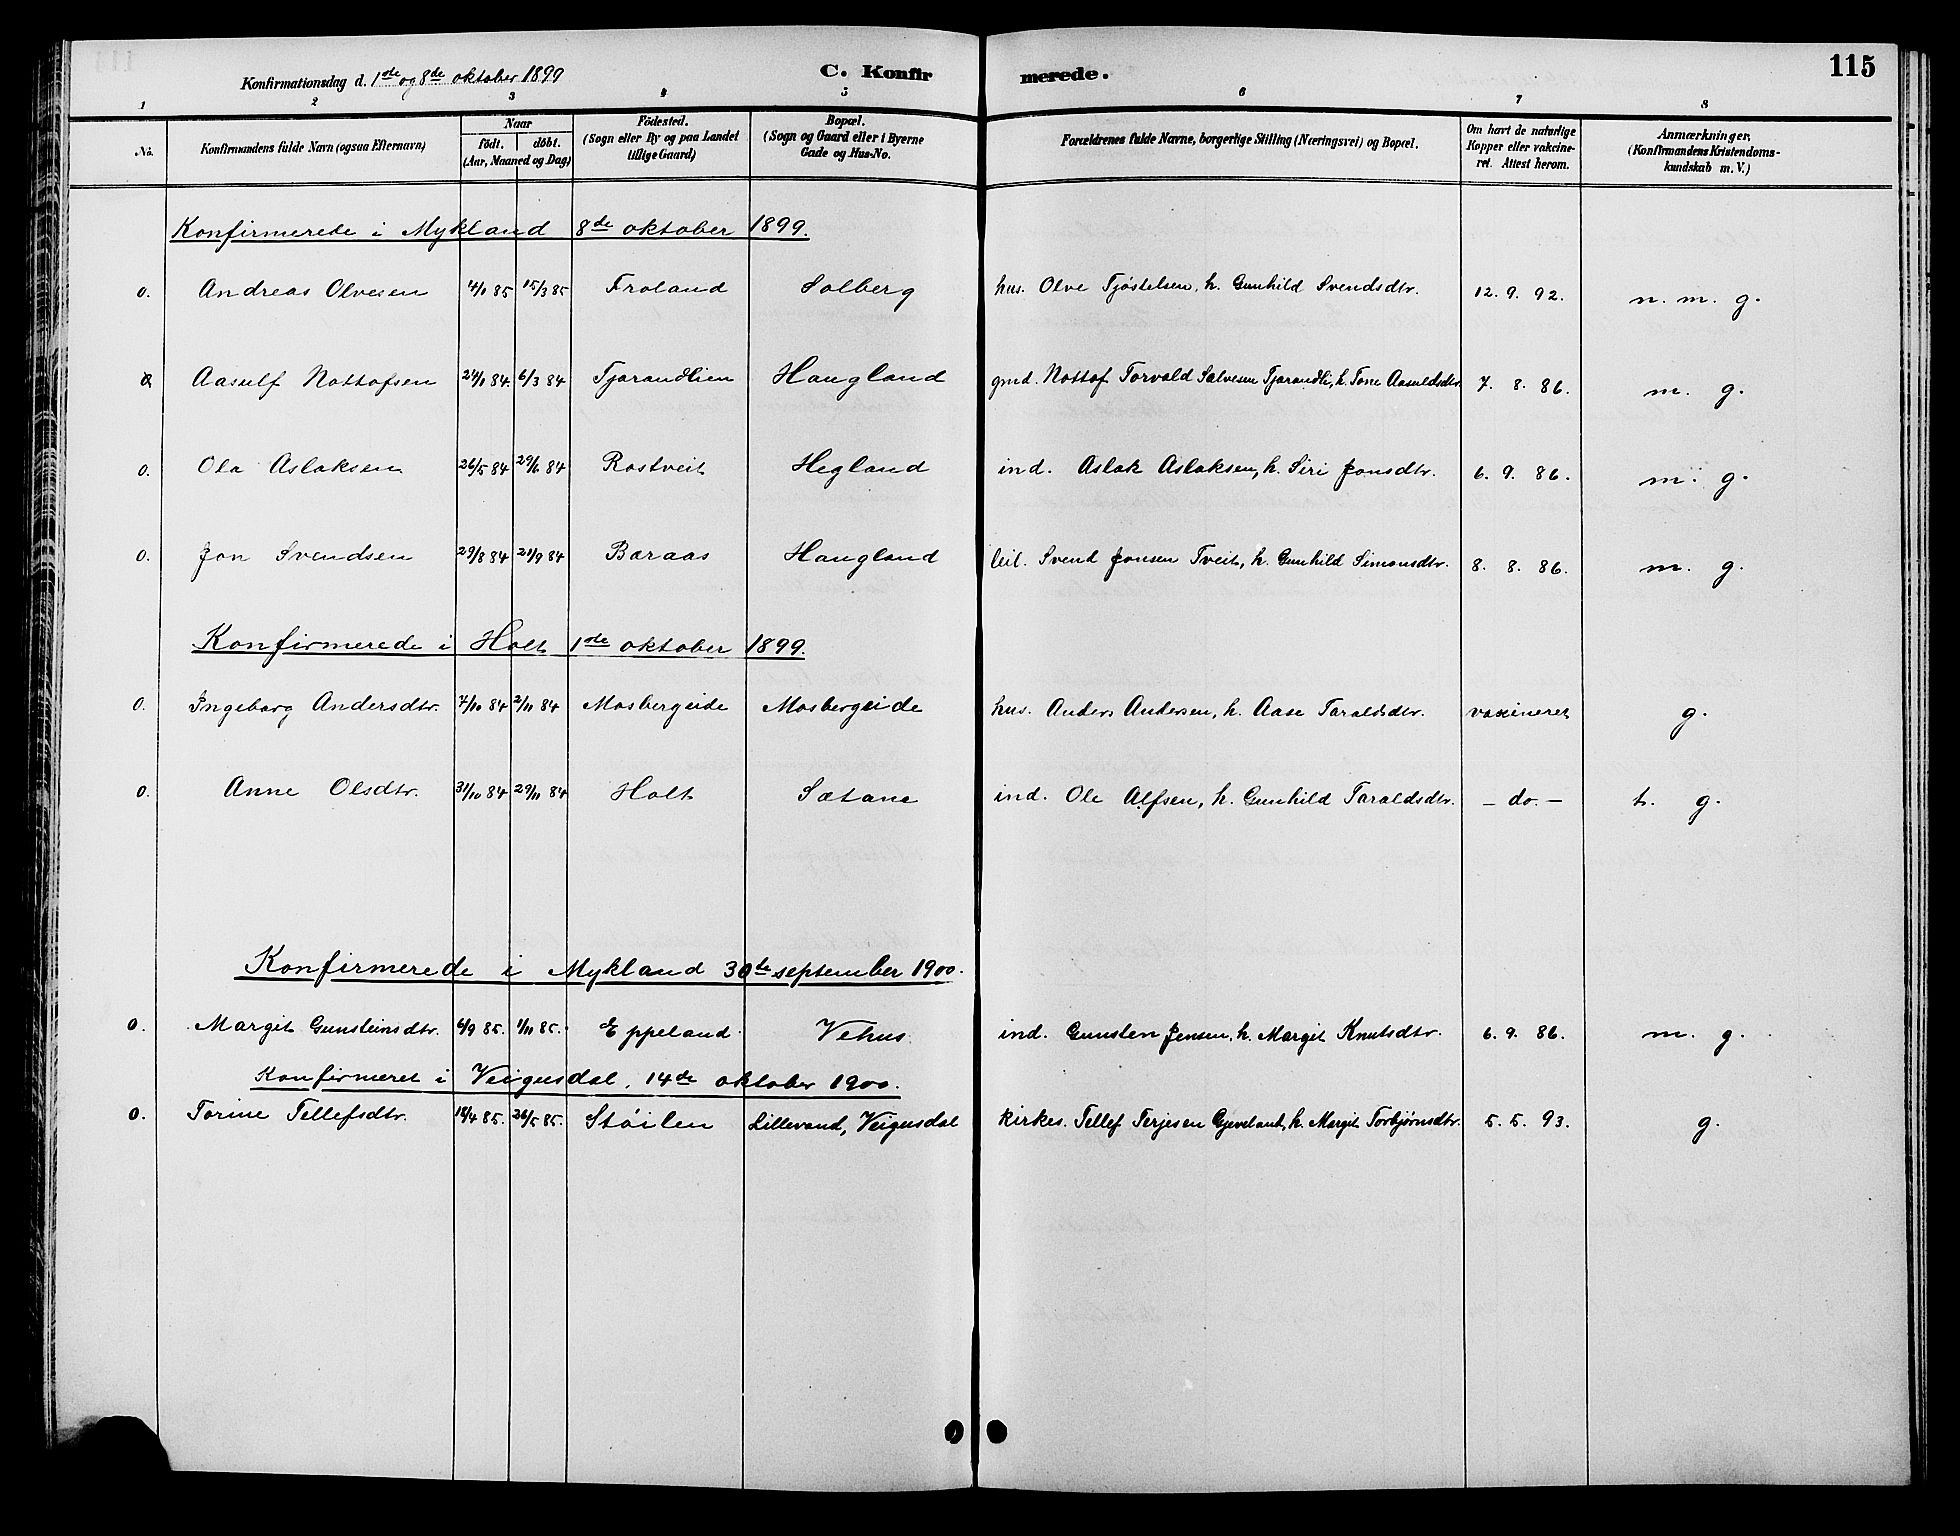 Konfirmationsdag d. 1ste og 8de oktober 1899 C. Konfirmerede. 115
1 2 3 4 5 6 7 8
No. Konfirmandens fulde Navn (ogsaa Efternavn) Naar födt. döbt. (Aar, Maaned og Dag) Födested. (Sogn eller By og paa Landet tillige Gaard) Bopæl. (Sogn og Gaard eller i Byerne Gade og Hus-No. Forældrenes fulde Navne, borgerlige Stilling (Næringsvei) og Bopæl. Om havt de naturlige Kopper eller vakcineret. Attest herom. Anmærkninger. (Konfirmandens Kristendomskundskab m. V.)
Konfirmerede i Mykland 8de oktober 1899.
0. Andreas Olvesen 4/1 85 15/3 85 Froland Solberg hus. Olve Tjøstelsen, h. Gunhild Svendsdtr. 12. 9. 92. n. m. g.
Aasulf Nottofsen 24/1 84. 6/3 84 Tjorandlien Haugland gmd. Nottof Torvald Salvesen Tjorandli, h. Tone Aasuldsdtr. 7. 8. 86. m. g.
0. Ola Aslaksen 26/5 84 29/6 84 Rostveit Hegland ind. Aslak Aslaksen, h. Siri Jonsdtr. 6. 9. 86. m. g.
0. Jon Svendsen 29/8 84 21/9 84 Baraas Haugland leil. Svend Jonsen Tveit, h. Gunhild Simonsdtr. 8. 8. 86. m. g.
Konfirmerede i Holt 1ste oktober 1899.
0. Ingeborg Andersdtr. 7/10 84 2/11 84 Mosbergeide Mosbergeide hus. Anders Andersen, h. Aase Taraldsdtr. vaxineret g.
0. Anne Olsdtr. 31/10 84 29/11 84 Holt Sætane ind. Ole Alfsen, h. Gunhild Taraldsdtr. – do. – t. g.
Konfirmerede i Mykland 30te september 1900.
0. Margit Gunsteinsdtr. 6/9 85. 1/11 85. Eppeland Vehus. ind. Gunsten Jensen, h. Margit Knutsdtr. 6. 9. 86. m. g.
Konfirmeret i Veigusdal. 14de oktober 1900.
0. Torine Tellefsdtr. 18/4 85. 26/5 85. Støilen Lillevand, Veigusdal kirkes. Tellef Terjesen Gjeveland, h. Margit Torbjørnsdtr. 5. 5. 93. g.